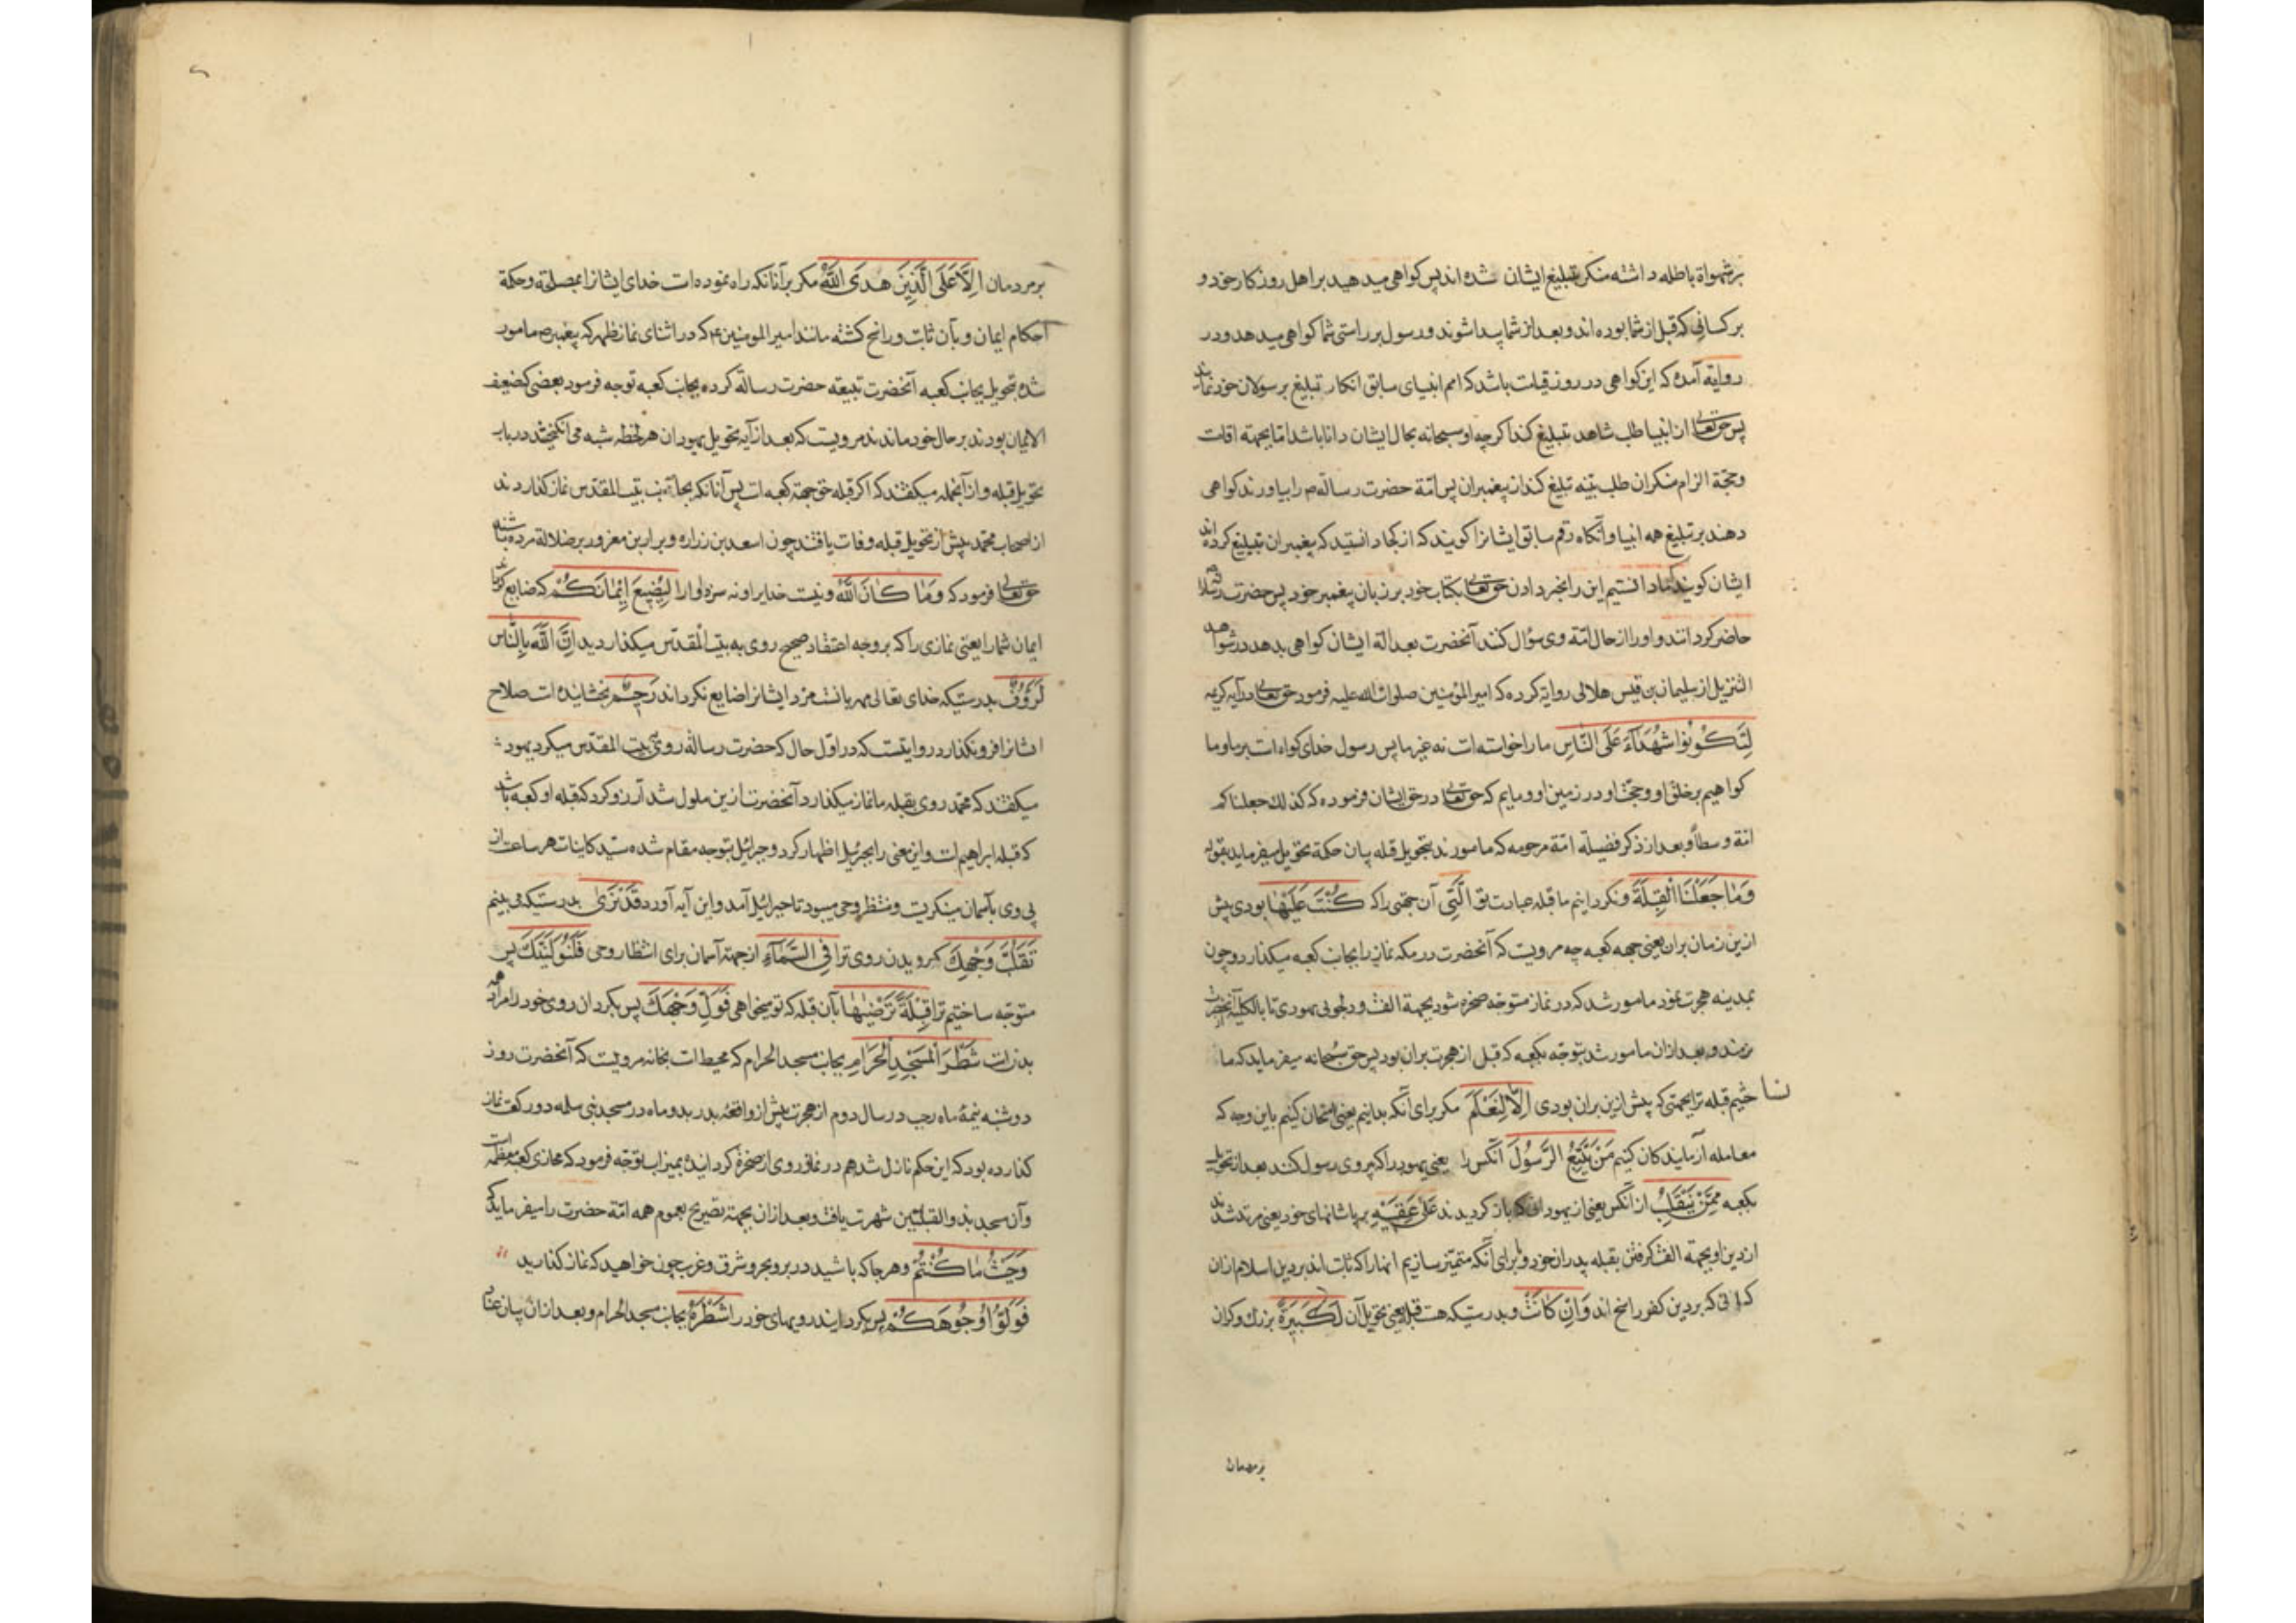 بر شهواة باطله داشته منکر تبلیغ ایشان شده اند پس کواهی میدهید بر اهل روزکار خود و
بر کسانی که قبل از شما بوده اند و بعد از شما پیدا شوند و رسول بر راستی شما کواهی میدهد و در
روایة آمده که این کواهی در روز قیامت باشد که امم انبیای سابق انکار تبلیغ بر سولان خود نمایند
پس حق تعالی از انبیا طلب شاهد تبلیغ کند اکرچه او سبحانه بحال ایشان دانا باشد اما بجهته اقامت
وحجّة الزام منکران طلب بینه تبلیغ کند از پیغمبران پس امّة حضرت رسالة م را بیاورند کواهی
دهند بر تبلیغ همه انبیا و آنکاه رقم سابق ایشانرا کویند که از کجا دانستید که پیغمبران تبلیغ کرده اند
ایشان کویند که ما دانستیم این را بخبر دادن حق تعالی بکتاب خود بر زبان پیغمبر خود پس حضرت رسالة
حاضر کردانند و اورا از حال امّة وی سؤال کند آنحضرت بعدالة ایشان کواهی بدهد در شواهد
التنزیل از سلیمان بن قیس هلالی روایة کرده که امیر المؤمنین صلوات الله علیه فرمود حق تعالی در آیه کریمه
لِتَكُونُوا شُهَدَآءَ عَلَى النَّاسِ مارا خواسته است نه غیر ما پس رسول خدای کواه است بر ما و ما
کواهیم بر خلق او و حجّت او در زمین او و ماییم که حق تعالی در حق ایشان فرموده که کذلک جعلناکم
امّة وسطاً و بعد از ذکر فضیلة امّة مرحومه که مامورند بتحویل قبله بیان حکمة تحویل میفرماید بقوله
وَمَا جَعَلْنَا الْقِبْلَةَ و نکردانیم ما قبله عبادت تو الَّتِی آن جهتی را که كُنْتَ عَلَيْهَا بودی پیش
ازین زمان بران یعنی جهه کعبه چه مرویست که آنحضرت در مکه نماز را بجانب کعبه میکذارد و چون
بمدینه هجرت نمود مامور شد که در نماز متوجّه صخره شود بجهة الفت و دلجویی یهودی تا بالکلیّه از آنحضرت
نرمند و بعد ازان مامور شد بتوجّه بکعبه که قبل از هجرت بران بود پس حق سُبحانه میفرماید که ما
نساختیم قبله ترا بجهتی که پیش ازین بران بودی اِلَّا لِنَعْلَمَ مکر برای آنکه بدانیم یعنی امتحان کنیم باین وجه که
معامله آزمایندکان کنیم مَنْ يَتَّبِعُ الرَّسُولَ آنکس را یعنی یهود را که پیروی رسول کند بعد از تحویل
بکعبه مِمَّنْ يَنْقَلِبُ از آنکس یعنی از یهودان که باز کردیدند عَلَى عَقِبَيْهِ بر پاشنهای خود یعنی مرتد شدند
از دین او بجهة الفت کرفتن بقبله پدران خود و یا برای آنکه متمیّز سازیم انهارا که ثابت اند بر دین اسلام ازان
کسانی که بر دین کفر راسخ اند وَاِنْ كَانَتْ و بدرستیکه هست قبله یعنی تحویل آن لَكَبِيرَةً بزرک و کران
بر مردمان
بر مردمان اِلَّا عَلَى الَّذِينَ هَدَى اللَّهُ مکر بر آنانکه راه نموده است خدای ایشانرا بمصلحة و حکمة
احکام ایمان و بآن ثابت و راسخ کشته مانند امیر المومنین ع که در اثنای نماز ظهر که پیغمبر ص مامور
شد بتحویل بجانب کعبه آنحضرت تبیعته حضرت رسالة کرده بجانب کعبه توجه فرمود بعضی که ضعیف
الایمان بودند بر حال خود ماندند مرویست که بعد از آیه تحویل یهودان هر لحظه شبه می انکیختند در باب
تحویل قبله و از آنجمله میکفتند که اکر قبله حق جهة کعبه است پس آنانکه بجانب بیت المقدس نماز کذاردند
از اصحاب محمد پیش از تحویل قبله وفات یافتند چون اسعد بن زراره و براء بن معرور بر ضلالة مرده باشند
حق تعالی فرمود که وَمَا كَانَ اللَّهُ و نیست خدایرا و نه سزاوار لِيُضِيعَ اِيمَانَكُمْ که ضایع کرداند
ایمان شمارا یعنی نمازی را که بر وجه اعتقاد صحیح روی به بیت المقدس میکذاردید اِنَّ اللَّهَ بِالنَّاسِ
لَرَؤُفٌ بدرستیکه خدای تعالی مهربانست مزد ایشانرا ضایع نکرداند رَحِيمٌ بخشاینده است صلاح
ایشانرا فرو نکذارد در روایتست که در اوّل حال که حضرت رسالة روی ببیت المقدّس میکرد یهود
میکفتند که محمّد روی بقبله ما نماز میکذارد آنحضرت ازین ملول شد آرزو کرد که قبله او کعبه باشد
که قبله ابراهیم است و این معنی را بجبرئیل اظهار کرد و جبرائیل بتوجه مقام شده سیّد کاینات هر ساعت از
پی وی بآسمان مینکریست و منتظر وحی میبود تا جبرائیل آمد و این آیه آورد قَدْ نَرَى بدرستیکه می بینیم
تَقَلُّبَ وَجْهِكَ کردیدن روی ترا فِى السَّمَآءِ از جهة آسمان برای انتظار وحی فَلَنُوَلِّيَنَّكَ پس
متوجّه ساختیم ترا قِبْلَةً تَرْضَيهَا بآن قبله که تو میخواهی فَوَلِّ وَجْهَكَ پس بکردان روی خود را مراد
بذات شَطْرَ الْمَسْجِدِ الْحَرَامِ بجانب مسجد الحرام که محیط است بخانه مرویست که آنحضرت روز
دوشنبه نیمهٔ ماه رجب در سال دوم از هجرت پیش از واقعهٔ بدر بدو ماه در مسجد بنی سلمه دو رکعت نماز
کذارده بود که این حکم نازل شد هم در نماز روی از صخره کردانیده بمیزاب توجّه فرمود که محاذی کعبه معظمه است
و آن مسجد بذو القبلتین شهرت یافت و بعد ازان بجهته تصریح بعموم همه امّة حضرت را میفرماید که
وَحَيْثُ مَا كُنْتُمْ و هر جا که باشید در بر و بحر و شرق و غرب چون خواهید که نماز کذارید
فَوَلُّوا وُجُوهَكُمْ پس بکردانید رویهای خود را شَطْرَهُ بجانب مسجد الحرام و بعد ازان بیان عناد